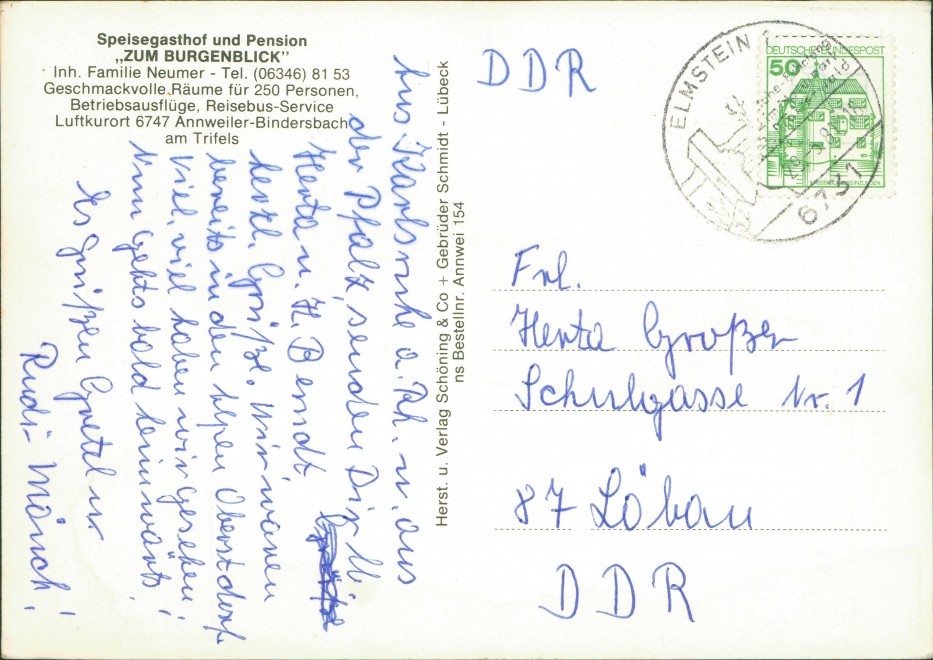 Speisegasthof und Pension
„ZUM BURGENBLICK"
Inh. Familie Neumer - Tel. (06346) 81 53
Geschmackvolle Räume für 250 Personen,
Betriebsausflüge, Reisebus-Service
Luftkurort 6747 Annweiler-Bindersbach
am Trifels
Aus Karlsruhe a. Rh. u. aus
der Pfalz, senden Dir lb.
Herta u. H. Berndt
herzl. Grüße. Wir waren
bereits in den Alpen Oberstdorf
viel, viel haben wir gesehen!
Nun gehts bald heimwärts!
Es grüßen Gretel u
Rudi- Mönch!
Herst. u. Verlag Schöning & Co + Gebrüder Schmidt - Lübeck
ns Bestellnr. Annwei 154
DDR
ELMSTEIN 1
6731
DEUTSCHE BUNDESPOST
50
Frl.
Herta Großer
Schulgasse Nr. 1
87 Löbau
DDR